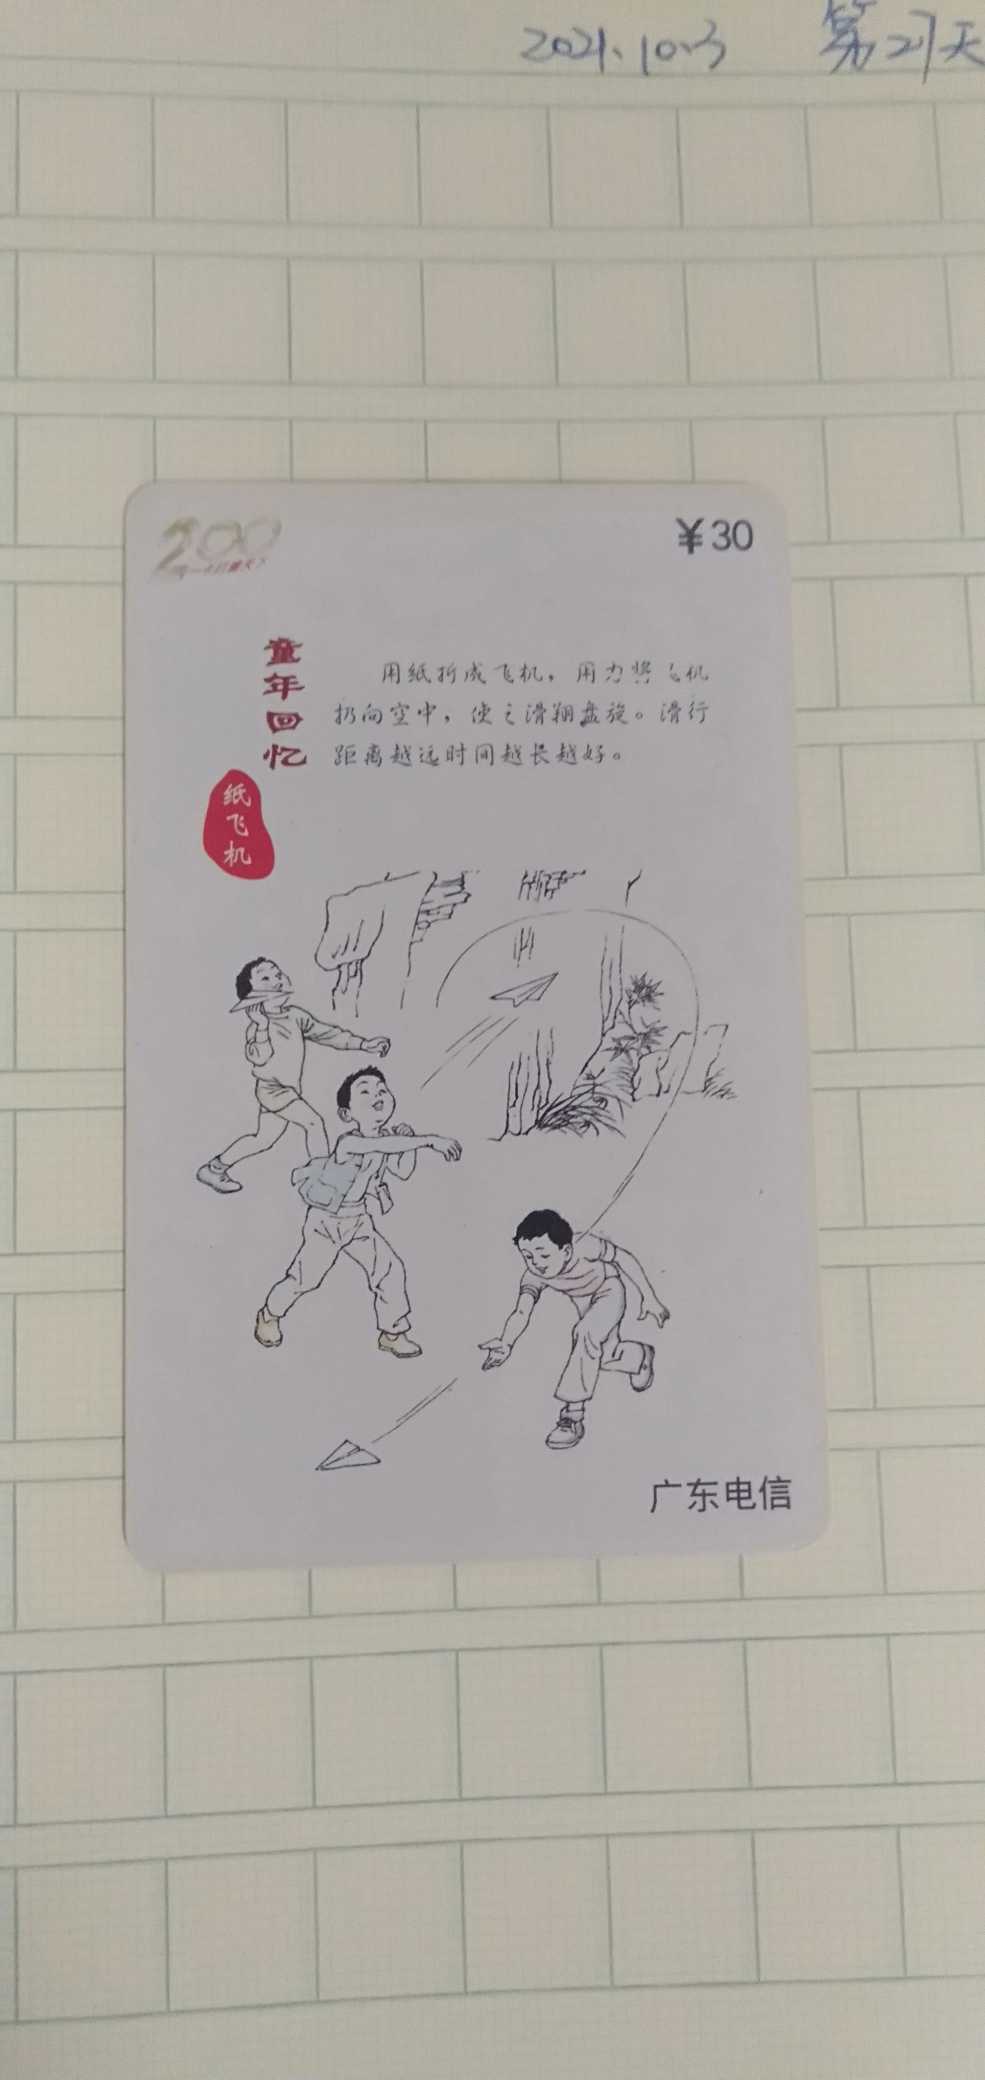 2021.10.3 第27天
200
¥30
童年回忆
用纸折成飞机，用力将飞机
扔向空中，使之滑翔盘旋。滑行
距离越远时间越长越好。
纸飞机
广东电信